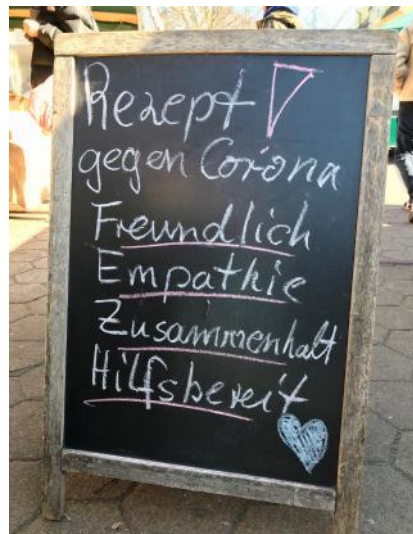 Rezept!
gegen Corona
Freundlich
Empathie
Zusammenhalt
Hilfsbereit